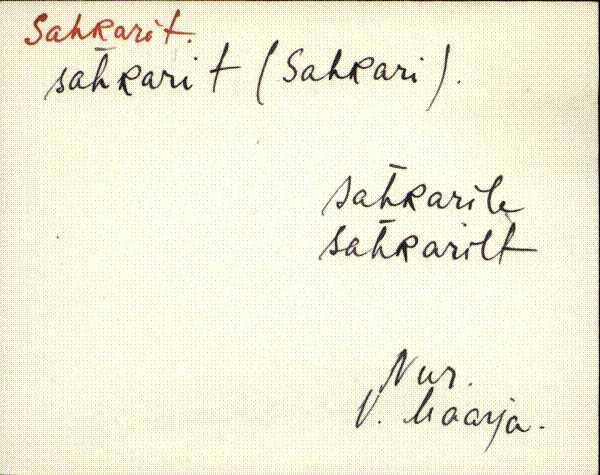 Sahkarit.
sah̄karit (Sahkari).
sah̄karile
sah̄karilt
Nur.
V. Maarja.